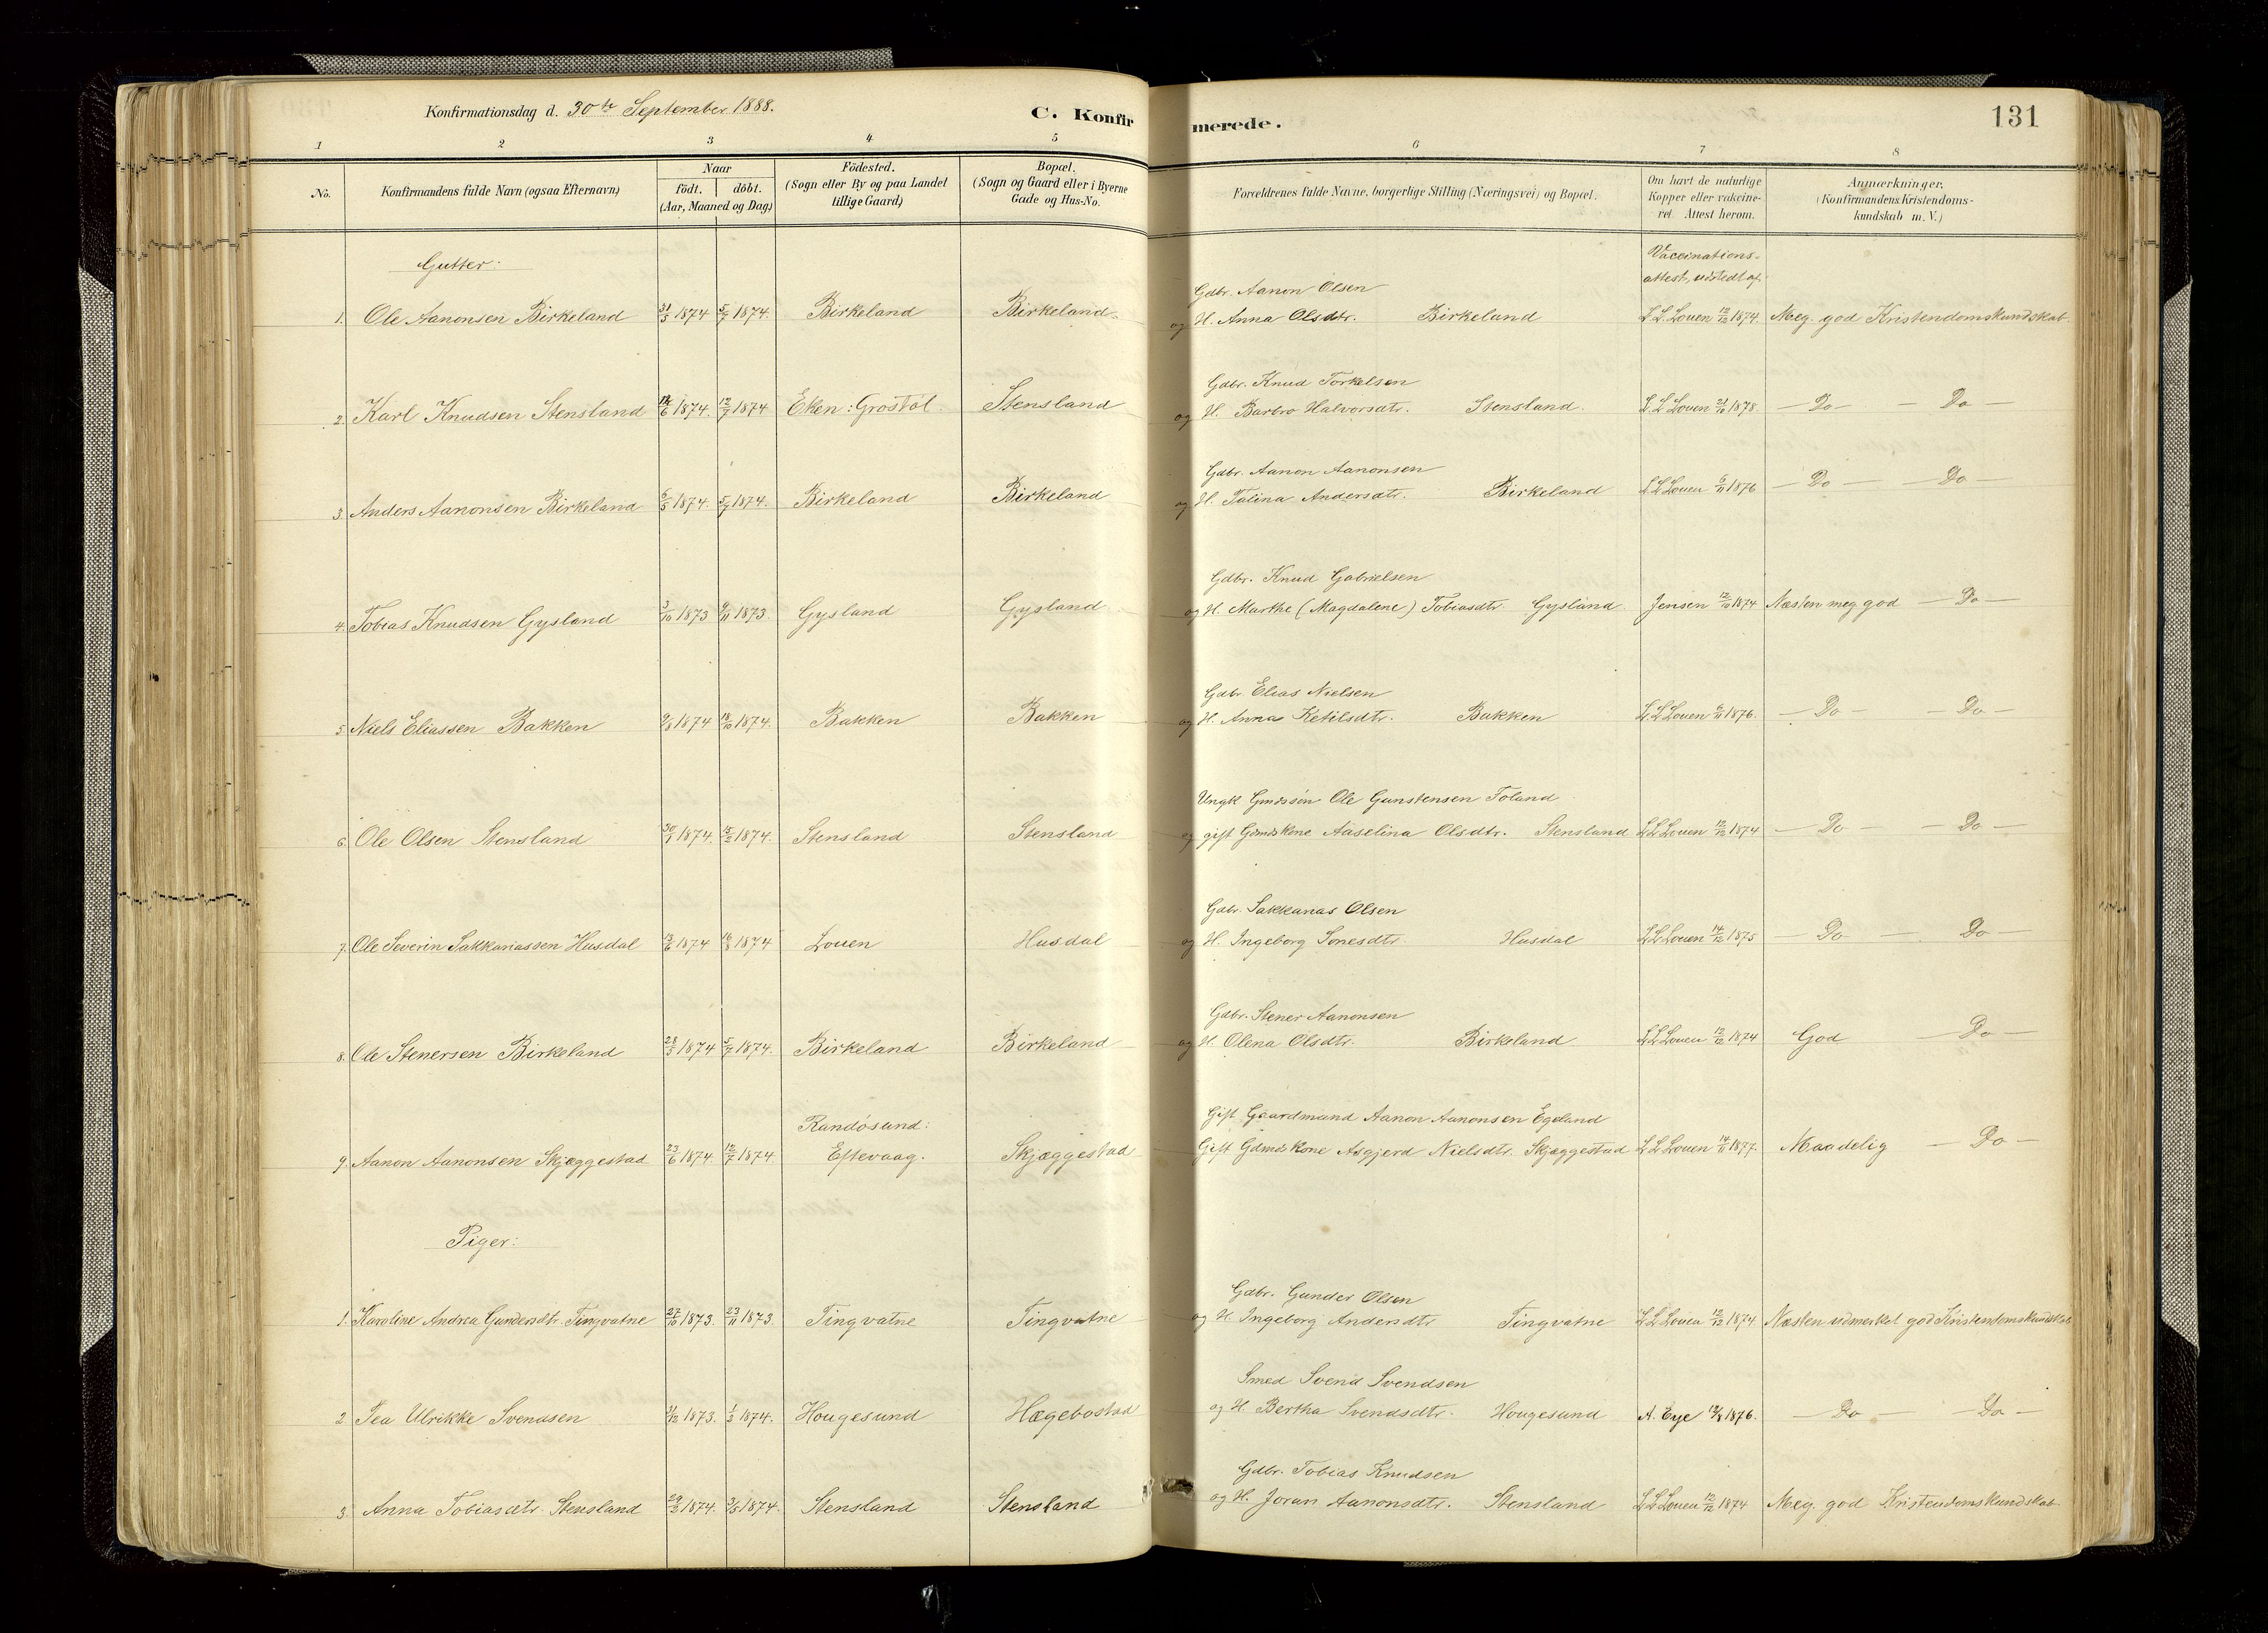 Konfirmationsdag d. 30te September 1888.
C. Konfirmerede.
131
1 2 3 4 5 6 7 8
No.
Konfirmandens fulde Navn (ogsaa Efternavn)
Naar
födt. döbt.
(Aar, Maaned og Dag)
Födested.
(Sogn eller By og paa Landet
tillige Gaard)
Bopæl.
(Sogn og Gaard eller i Byerne
Gade og Hus-No.
Forældrenes fulde Navne, borgerlige Stilling (Næringsvei) og Bopæl.
Om havt de naturlige
Kopper eller vakcine-
ret. Attest herom.
Anmærkninger.
(Konfirmandens Kristendoms-
kundskab m. V.)
Gutter:
Vaccinations-
attest, udstedt af
Gdbr. Aanon Olsen
1. Ole Aanonsen Birkeland 31/5 1874 5/7 1874. Birkeland Birkeland og H. Anna Olsdtr. Birkeland L. L. Louen 12/12 1874. Meg. god Kristendomskundskab.
Gdbr. Knud Torkelsen
2. Karl Knudsen Stensland 1874. 12/7 1874 Eken: Grostöl. Stensland og H. Barbro Halvorsdtr. Stensland. L. L. Louen 21/10 1878. — Do — Do —
Gdbr. Aanon Aanonsen
3. Anders Aanonsen Birkeland 6/5 1874. 5/7 1874. Birkeland Birkeland og H. Talina Andersdtr. Birkeland L L Louen 6/11 1876 — Do — — Do —
Gdbr. Knud Gabrielsen
4. Tobias Knudsen Gysland 3/10 1873 9/11 1873. Gysland Gysland og H. Marthe (Magdalene) Tobiasdtr. Gysland. Jensen 12/10 1874 Næsten meg god — Do —
Gdbr. Elias Nielsen
5. Niels Eliassen Bakken 9/8 1874 18/10 1874. Bakken Bakken og H. Anna Ketilsdtr. Bakken L. L. Louen 6/11 1876. — Do — — Do —
Ungk Gmdssön Ole Gunstensen Foland
6. Ole Olsen Stensland 30/1 1874. 15/2 1874. Stensland Stensland og gift Gdmdskone Aaselina Olsdtr. Stensland L L Louen 12/12 1874 — Do — — Do —
Gdbr. Sakkarias Olsen
7. Ole Severin Sakkariassen Husdal 13/6 1874 16/8 1874 Louen Husdal og H. Ingeborg Sonesdtr. Husdal L L Louen 14/12 1875 — Do — — Do —
Gdbr. Stener Aanonsen
8. Ole Stenersen Birkeland 28/5 1874 5/7 1874. Birkeland Birkeland og H. Olena Olsdtr. Birkeland L L Louen 12/12 1874 God — Do —
Gift Gaardmand Aanon Aanonsen Egeland
Randösund:
9. Aanon Aanonsen Skjæggestad 23/6 1874 12/7 1874. Eftevaag. Skjæggestad Gift Gdmdskone Asgjerd Nielsdtr. Skjæggestad L L Louen 14/11 1877. Maadelig — Do —
Piger:
Gdbr. Gunder Olsen
1. Karoline Andrea Gundersdtr. Tingvatne 27/10 1873. 23/11 1873. Tingvatne Tingvatne og H. Ingeborg Andersdtr Tingvatne L L Louen 12/12 1874. Næsten udmerket god Kristendomskundskab
Smed Svend Svendsen
2 Tea Ulrikke Svendsen 1873. 1874. Hougesund Hægebostad og H. Bertha Svendsdtr. Hougesund A. Eye 1876. — Do — Do —
Gdbr. Tobias Knudsen
3. Anna Tobiasdtr. Stensland 1874. 3/5 1874. Stensland Stensland og H. Joran Aanonsdtr. Stensland L L Louen 12/12 1874 Meg. god Kristendomskundskab